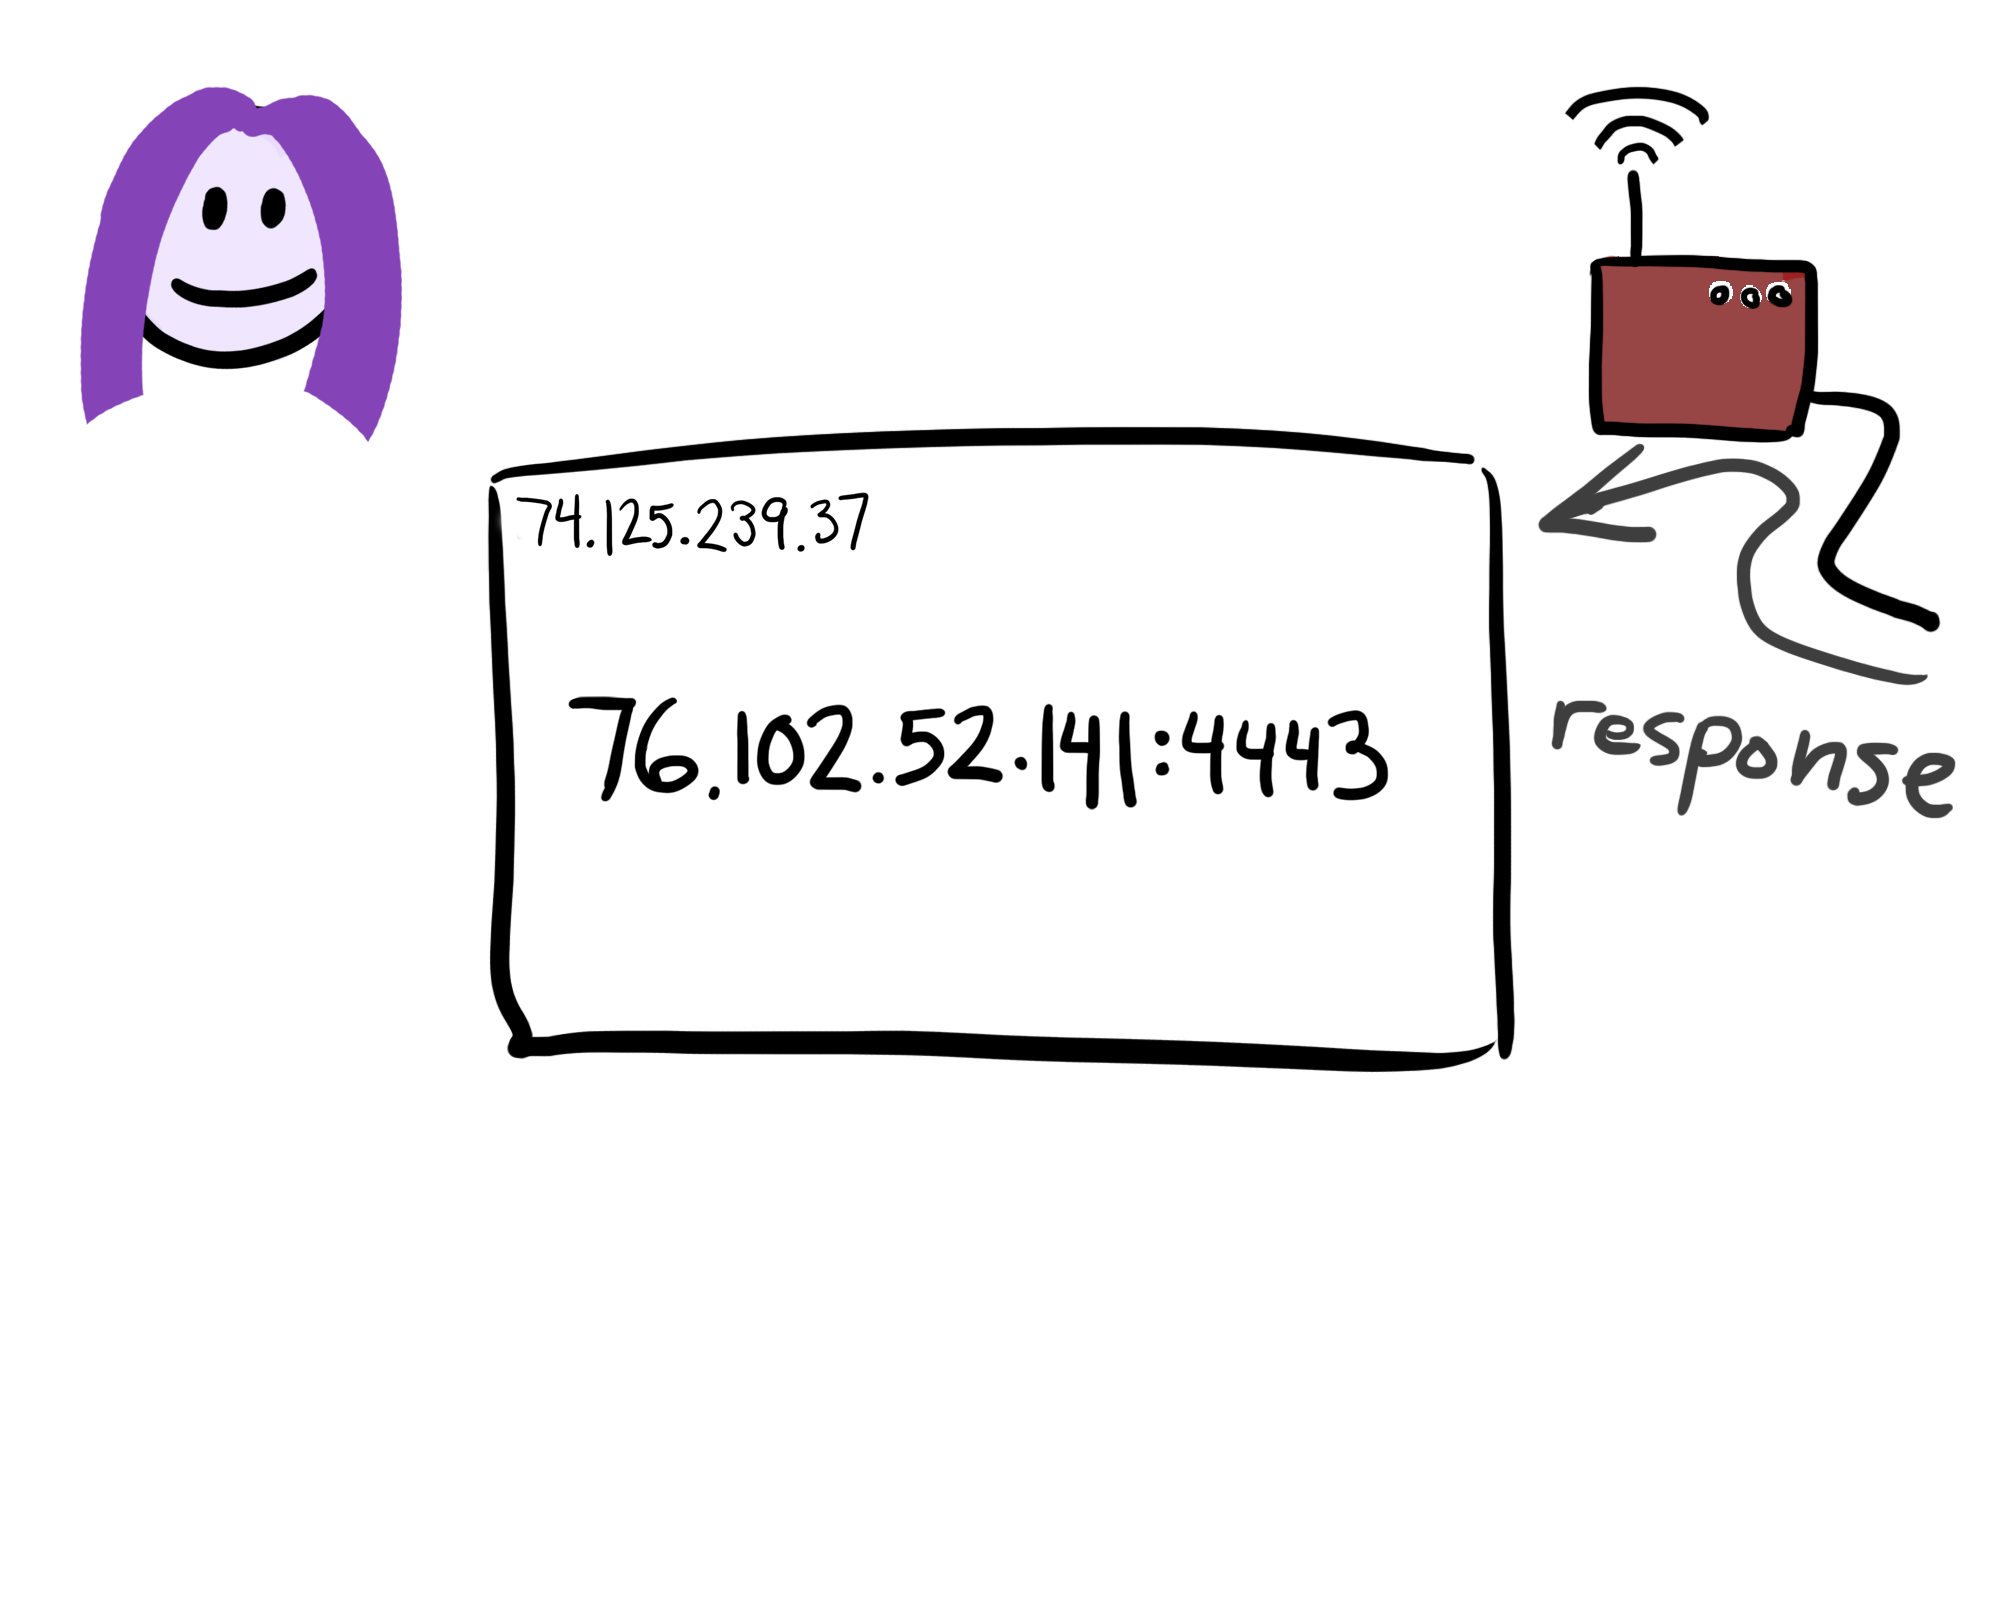 74.125.239.37
76.102.52.141:4443
response